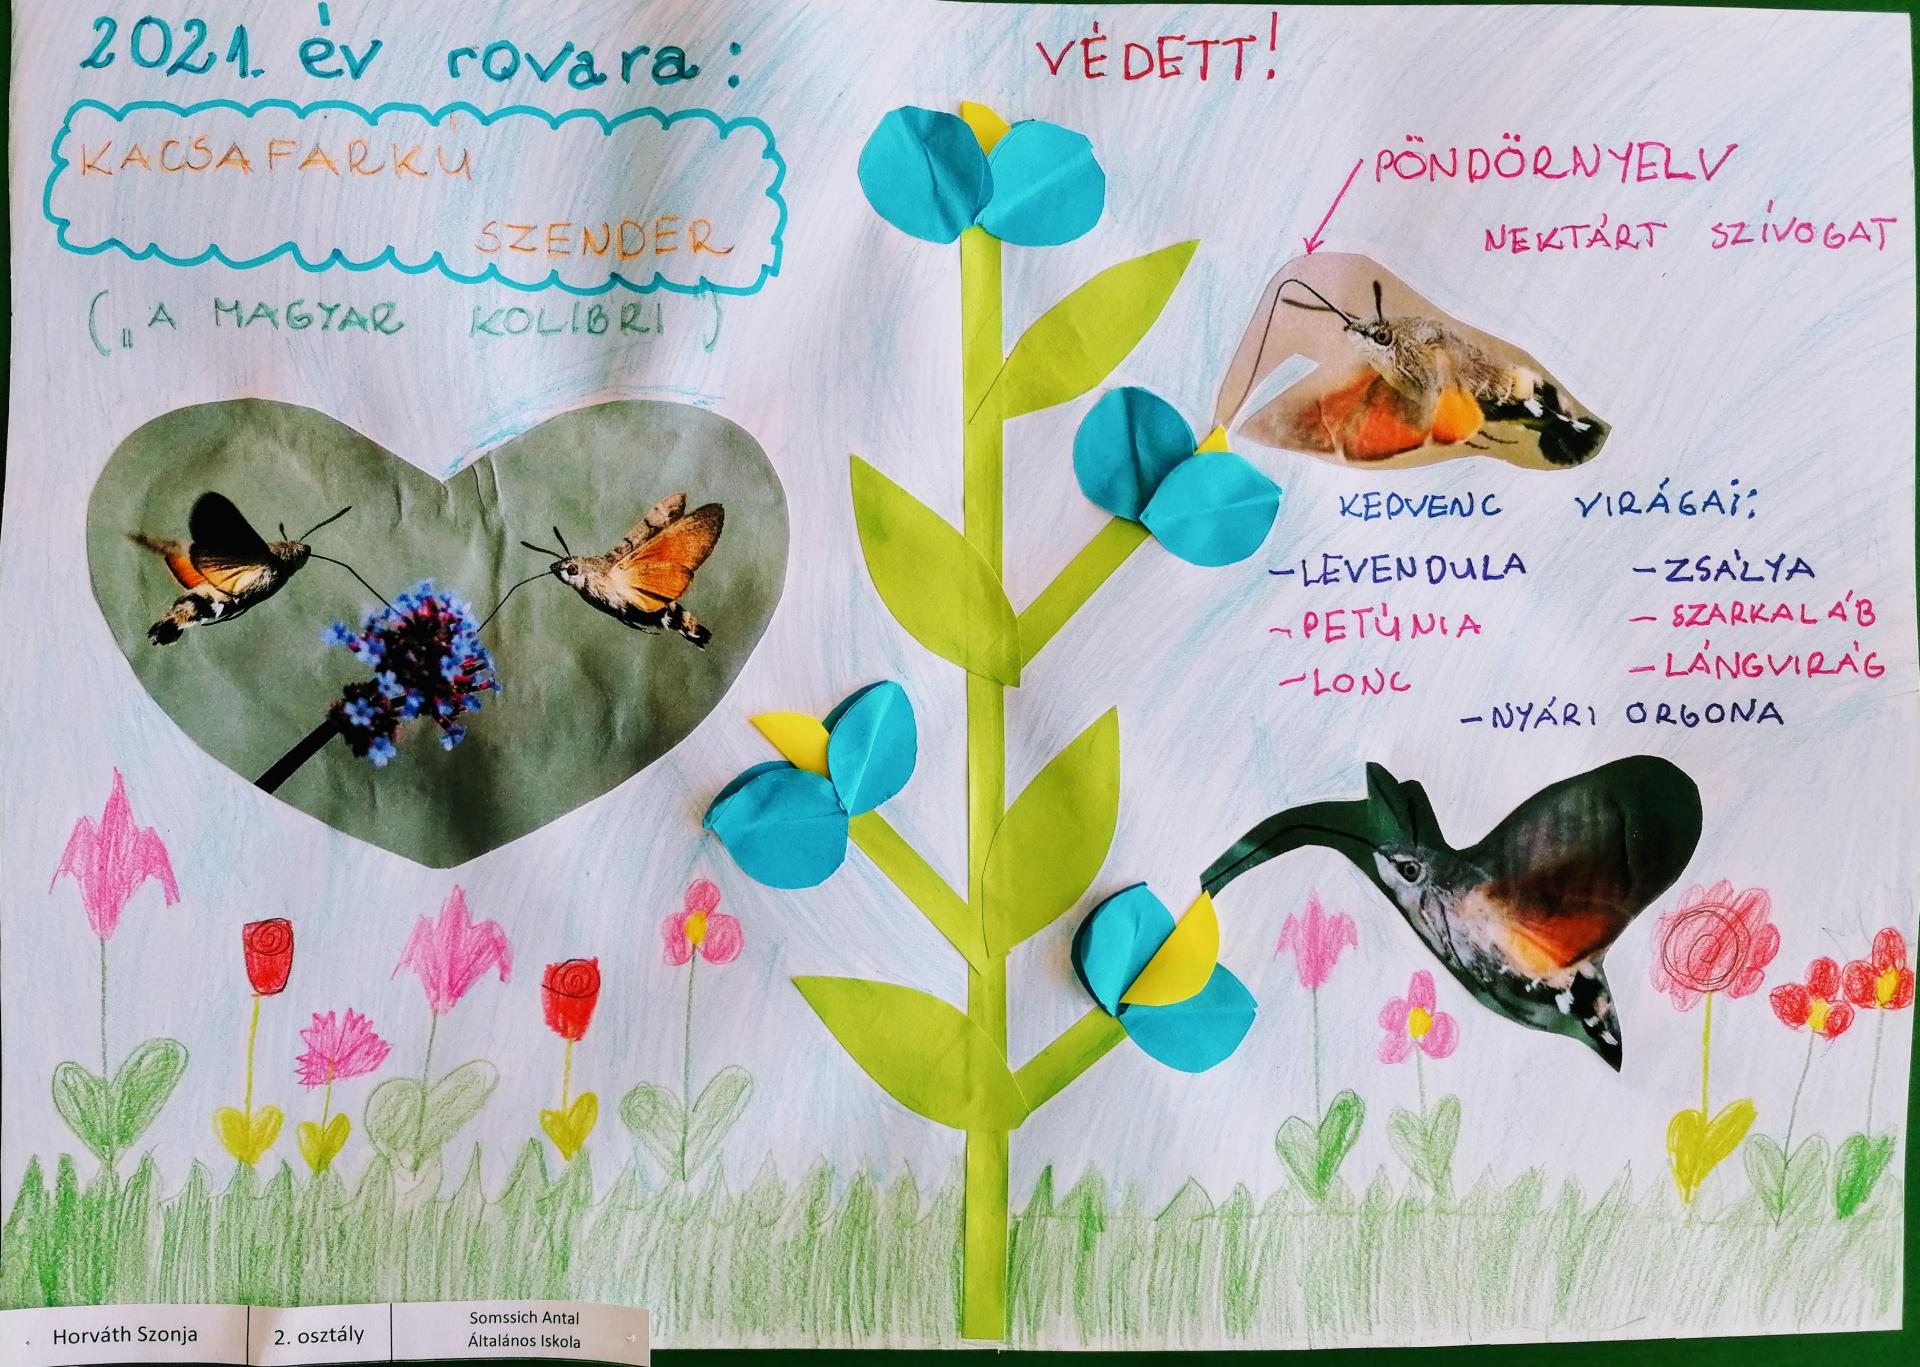 2021. év rovara:
KACSAFARKÚ
SZENDER
(„A MAGYAR KOLIBRI")
VÉDETT!
PÖNDÖRNYELV
NEKTÁRT SZÍVOGAT
KEDVENC VIRÁGAI:
-LEVENDULA
-PETÚNIA
-LONC
-ZSÁLYA
-SZARKALÁB
-LÁNGVIRÁG
-NYÁRI ORGONA
Horváth Szonja
2. osztály
Somssich Antal
Általános Iskola